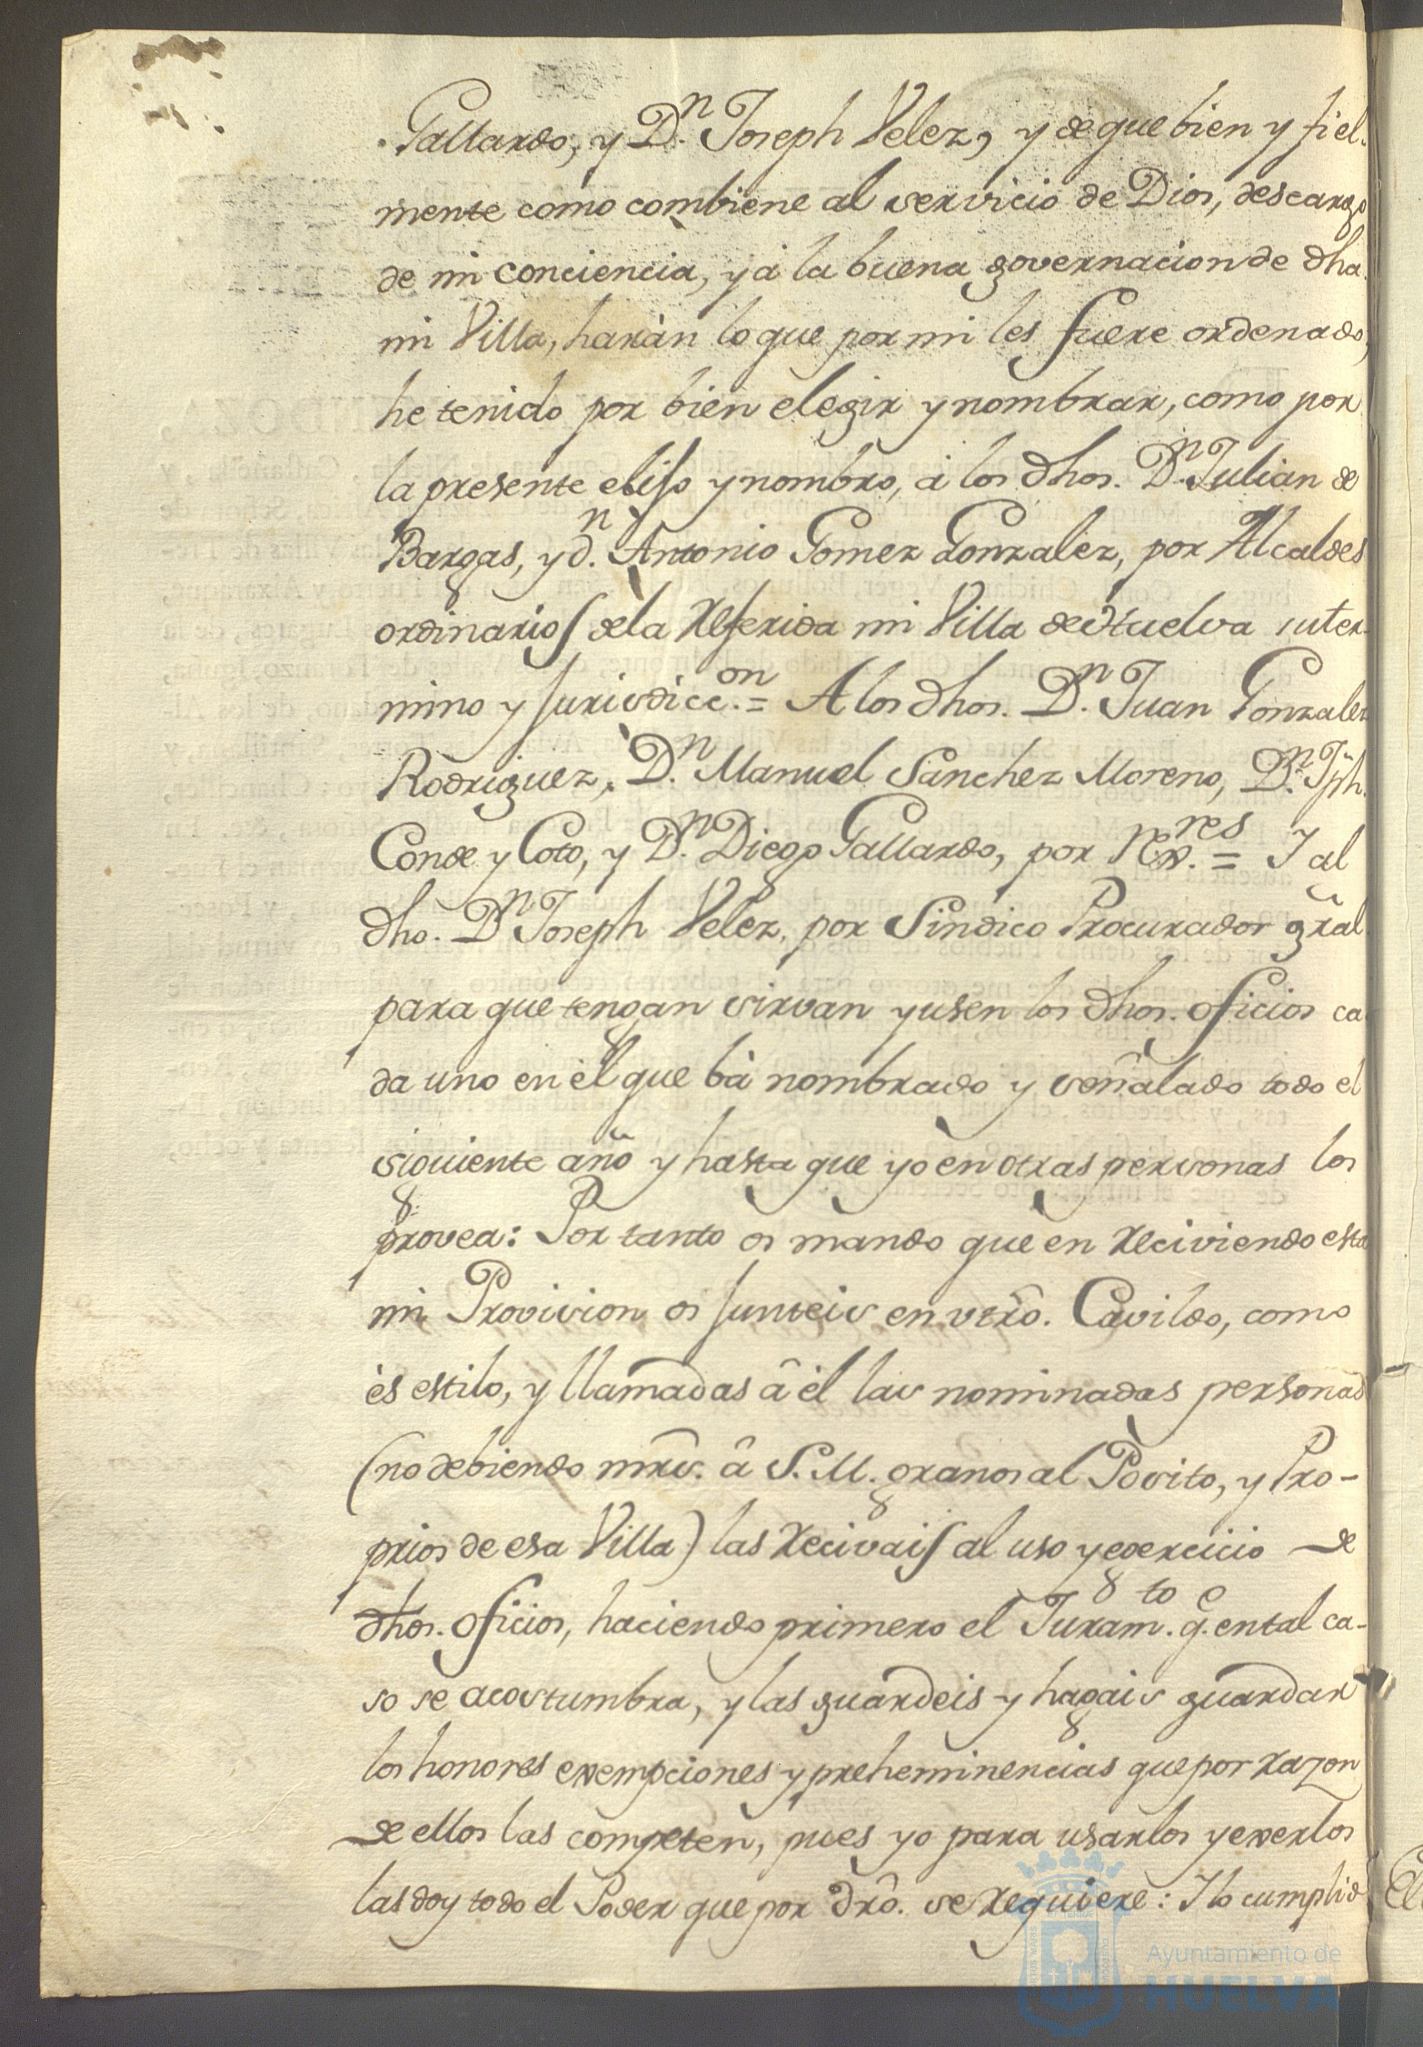 Gallardo, y Dn. Joseph Velez, y de que bien y fiel-
mente como combiene al servicio de Dios, descargo
de mi conciencia, y â la buena governacion de dha
mi Villa, haràn lo que por mi les fuere ordenado,
he tenido por bien elegir y nombrar, como por
la presente elijo y nombro, â los dhos. Dn. Julian de
Bargas, y dn. Antonio Gomez Gonzalez, por Alcaldes
ordinarios de la Referida mi Villa de Huelva suter-
mino y Jurisdiccon. = A los dhos. Dn. Juan Gonzalez
Rodriguez, Dn. Manuel Sanchez Moreno, Dn. Jph.
Conde y Coto, y Dn. Diego Gallardo, por Rexres. = Y al
dho. Dn. Joseph Velez, por Sindico Procurador gr̃al
para que tengan sirvan y usen los dhos. oficios ca
da uno en èl que bà nombrado y señalado todo el
siguiente año y hasta que yo en otras personas los
provea: Por tanto os mando que en Reciviendo esta
mi Provision os Junteis en vtr̃o. Cavildo, como
ès estilo, y llamadas â èl las nominadas personas
(no debiendo mr̃s. â S. M. granos al Posito, y Pro-
prios de esa Villa) las Recivais al uso y exercicio de
dhos. oficios, haciendo primero el Juramto. qe. ental ca-
so se acostumbra, y las guardeis y hagais guardar
los honores exempciones y preheminencias que por razon
de ellos las competen, pues yo para usarlos y exerlos
las doy todo el Poder que por dr̃o. se Requiere: Y lo cumplid
Ayuntamiento de
HUELVA